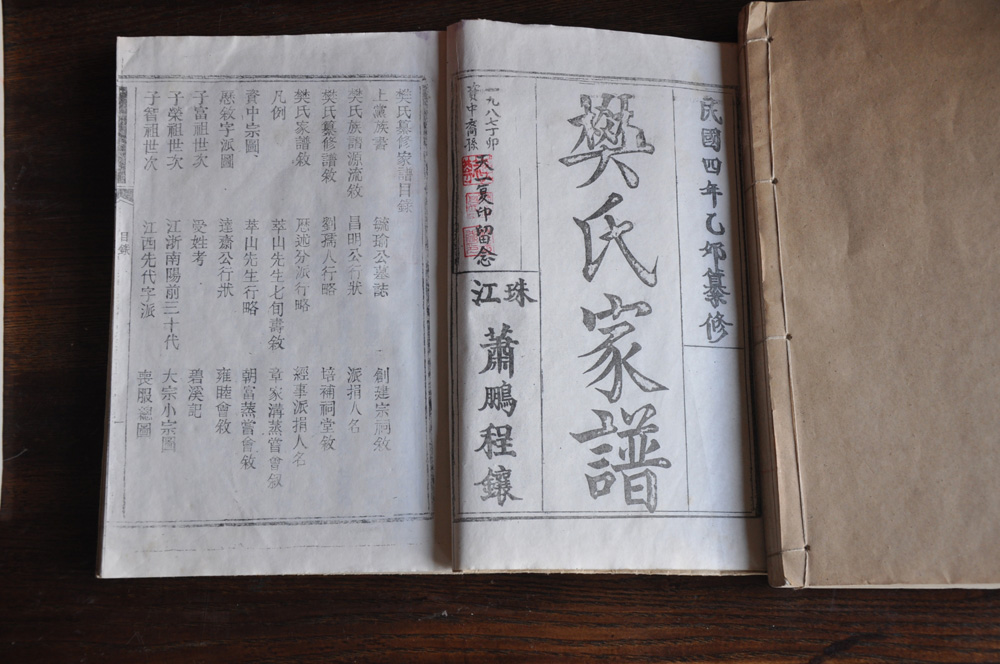 民國四年乙卯纂修
樊氏家譜
一九八七丁卯
資中裔孫
天一复印留念
珠江
蕭鵬程鑲
樊氏纂修家譜目錄
上黨族書 毓瑜公墓誌 創建宗祠敘
樊氏族譜源流敘 昌明公行狀 派捐人名
樊氏纂修譜敘 劉孺人行略 培補祠堂敘
樊氏家譜敘 歷述分派行略 經事派捐人名
凡例 莘山先生七旬壽敘 章家溝蒸嘗會敘
資中宗圖 莘山先生行略 朝富蒸嘗會敘
歷敘字派圖 達齋公行狀 雍睦會敘
子富祖世次 受姓考 碧溪記
子榮祖世次 江浙南陽前三十代 大宗小宗圖
子智祖世次 江西先代字派 喪服總圖
目錄